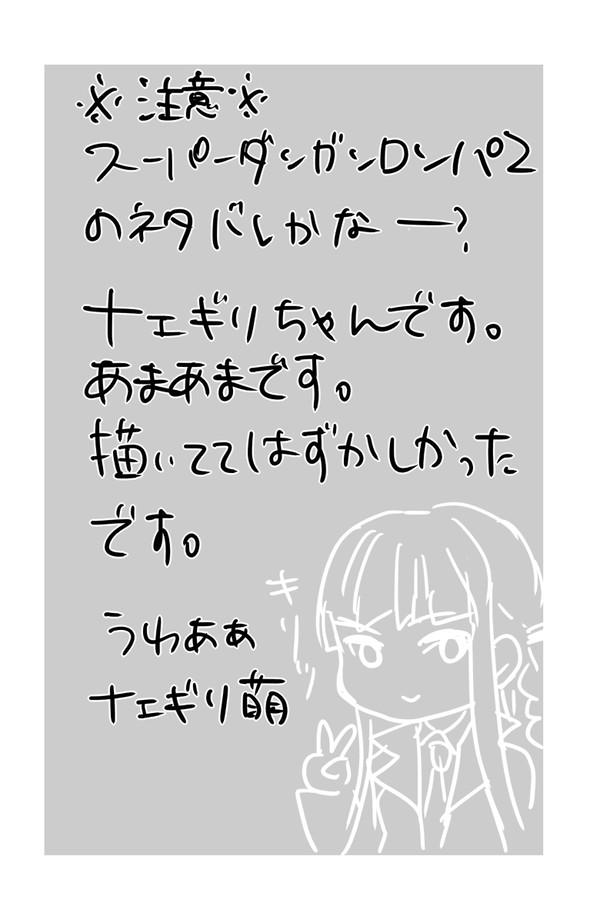 ※注意※
スーパーダンガンロンパ2
のネタバレかなー?
ナエギリちゃんです。
あまあまです。
描いててはずかしかった
です。
うわぁぁ
ナエギリ萌
キリッ